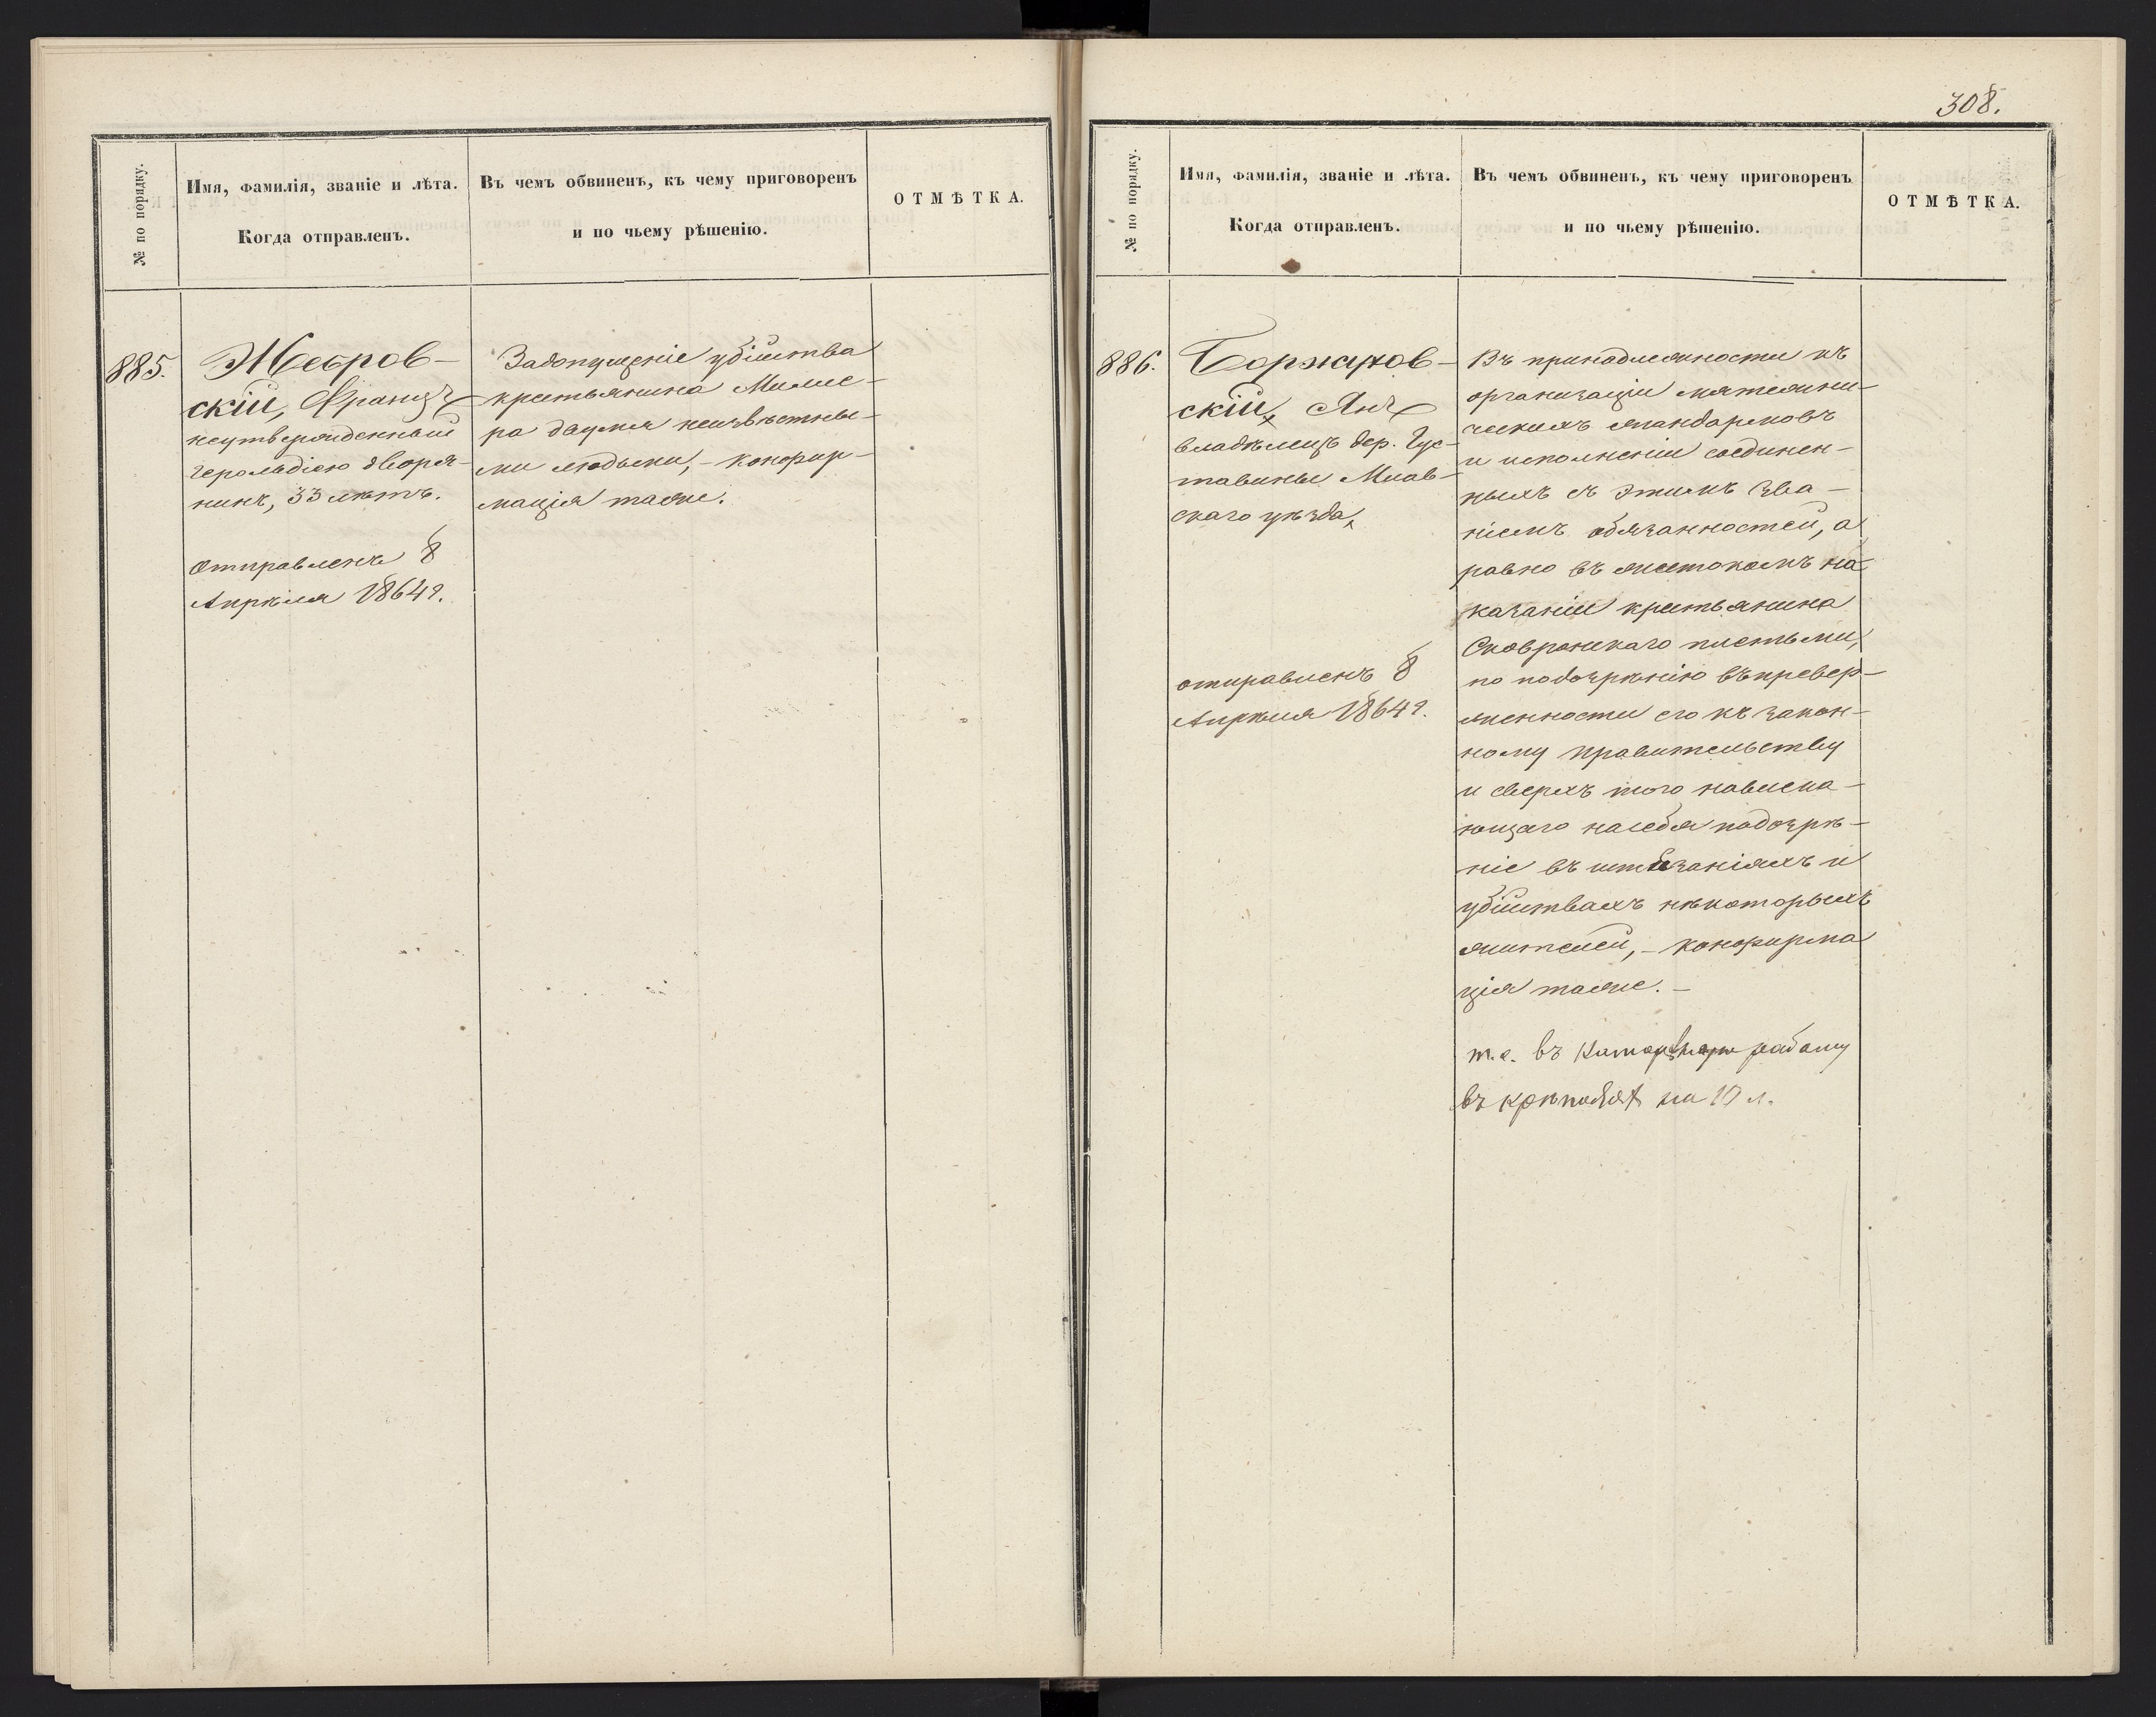 № по порядку.
Имя, фамилія, званіе и лѣта.
Когда отправленъ.
Въ чемъ обвиненъ, къ чему приговоренъ
и по чьему рѣшенію.
ОТМѢТКА.
885.
скій, Францъ
неутвержденный
герольдіею дворя-
нинъ, 33 лѣтъ.
отправленъ 8
Апрѣля 1864 г.
Задопущеніе убійства
крестьянина Милле-
ра двумя неизвѣстны-
ми людьми, - конфир-
мація тоже.
308.
№ по порядку.
Имя, фамилія, званіе и лѣта.
Когда отправленъ.
Въ чемъ обвиненъ, къ чему приговоренъ
и по чьему рѣшенію.
ОТМѢТКА.
886.
Боржухов-
скій, Янъ
владѣлецъ дер. Гус-
тавины Млав-
скаго уѣзда,
отправленъ 8
Апрѣля 1864 г.
Въ принадлежности къ
организаціи мятежни-
ческихъ жандармовъ
и исполненіи соединен-
ныхъ съ этимъ зва-
ніемъ обязанностей, а
равно въ жестокомъ на
казаніи крестьянина
Сковронскаго плетьми,
по подозрѣнію въ привер-
женности его къ закон-
ному правительству
и сверхъ того навлека-
ющаго на себя подозрѣ-
ніе въ истязаніяхъ и
убійствахъ нѣкоторыхъ
жителей, - конфирма
ція тоже. -
т.е. въ каторжную работу
въ крѣпостяхъ на 10 л.